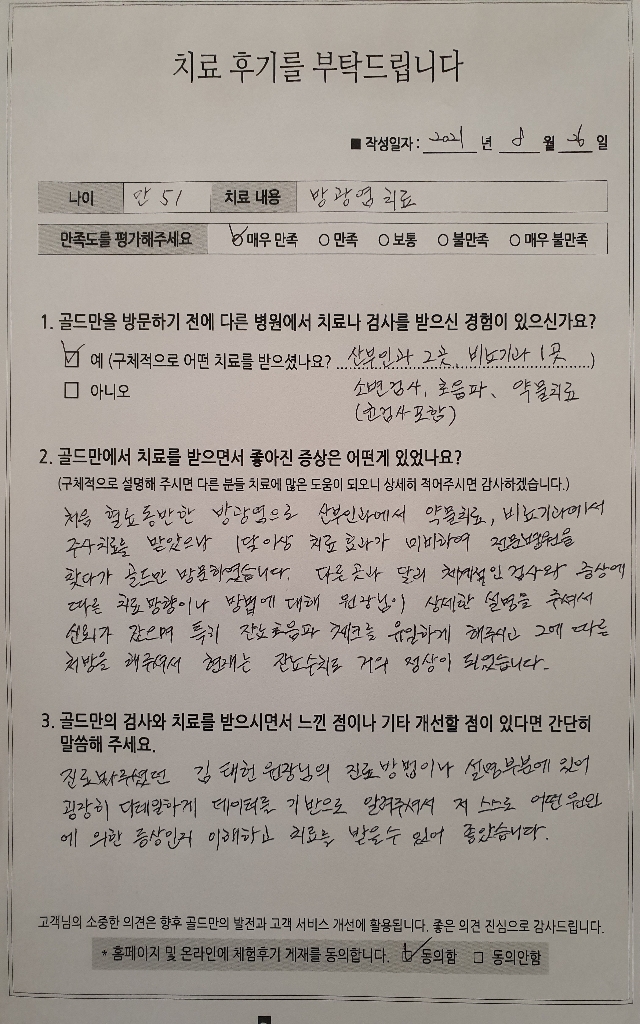 치료 후기를 부탁드립니다
■ 작성일자 : 2021 년 8 월 26 일
나이 만 51 치료 내용 방광염 치료
만족도를 평가해주세요 매우 만족 ○ 만족 ○ 보통 ○ 불만족 ○ 매우 불만족
1. 골드만을 방문하기 전에 다른 병원에서 치료나 검사를 받으신 경험이 있으신가요?
☑ 예 (구체적으로 어떤 치료를 받으셨나요? 산부인과 2곳, 비뇨기과 1곳 )
□ 아니오 소변검사, 초음파, 약물치료
(균검사포함)
2. 골드만에서 치료를 받으면서 좋아진 증상은 어떤게 있었나요?
(구체적으로 설명해 주시면 다른 분들 치료에 많은 도움이 되오니 상세히 적어주시면 감사하겠습니다.)
처음 혈뇨동반한 방광염으로 산부인과에서 약물치료, 비뇨기과에서
주사치료를 받았으나 1달이상 치료효과가 미비하여 전문병원을
찾다가 골드만 방문하였습니다. 다른곳과 달리 체계적인 검사와 증상에
따른 치료방향이나 방법에 대해 원장님이 상세한 설명을 주셔서
신뢰가 갔으며 특히 잔뇨초음파 체크를 유일하게 해주시고 그에 따른
처방을 해주셔서 현재는 잔뇨수치도 거의 정상이 되었습니다.
3. 골드만의 검사와 치료를 받으시면서 느낀 점이나 기타 개선할 점이 있다면 간단히
말씀해 주세요.
진료봐주셨던 김태헌 원장님의 진료방법이나 설명부분에 있어
굉장히 디테일하게 데이터를 기반으로 알려주셔서 저 스스로 어떤 원인
에 의한 증상인지 이해하고 치료를 받을수 있어 좋았습니다.
고객님의 소중한 의견은 향후 골드만의 발전과 고객 서비스 개선에 활용됩니다. 좋은 의견 진심으로 감사드립니다.
* 홈페이지 및 온라인에 체험후기 게재를 동의합니다. ☑ 동의함 □ 동의안함